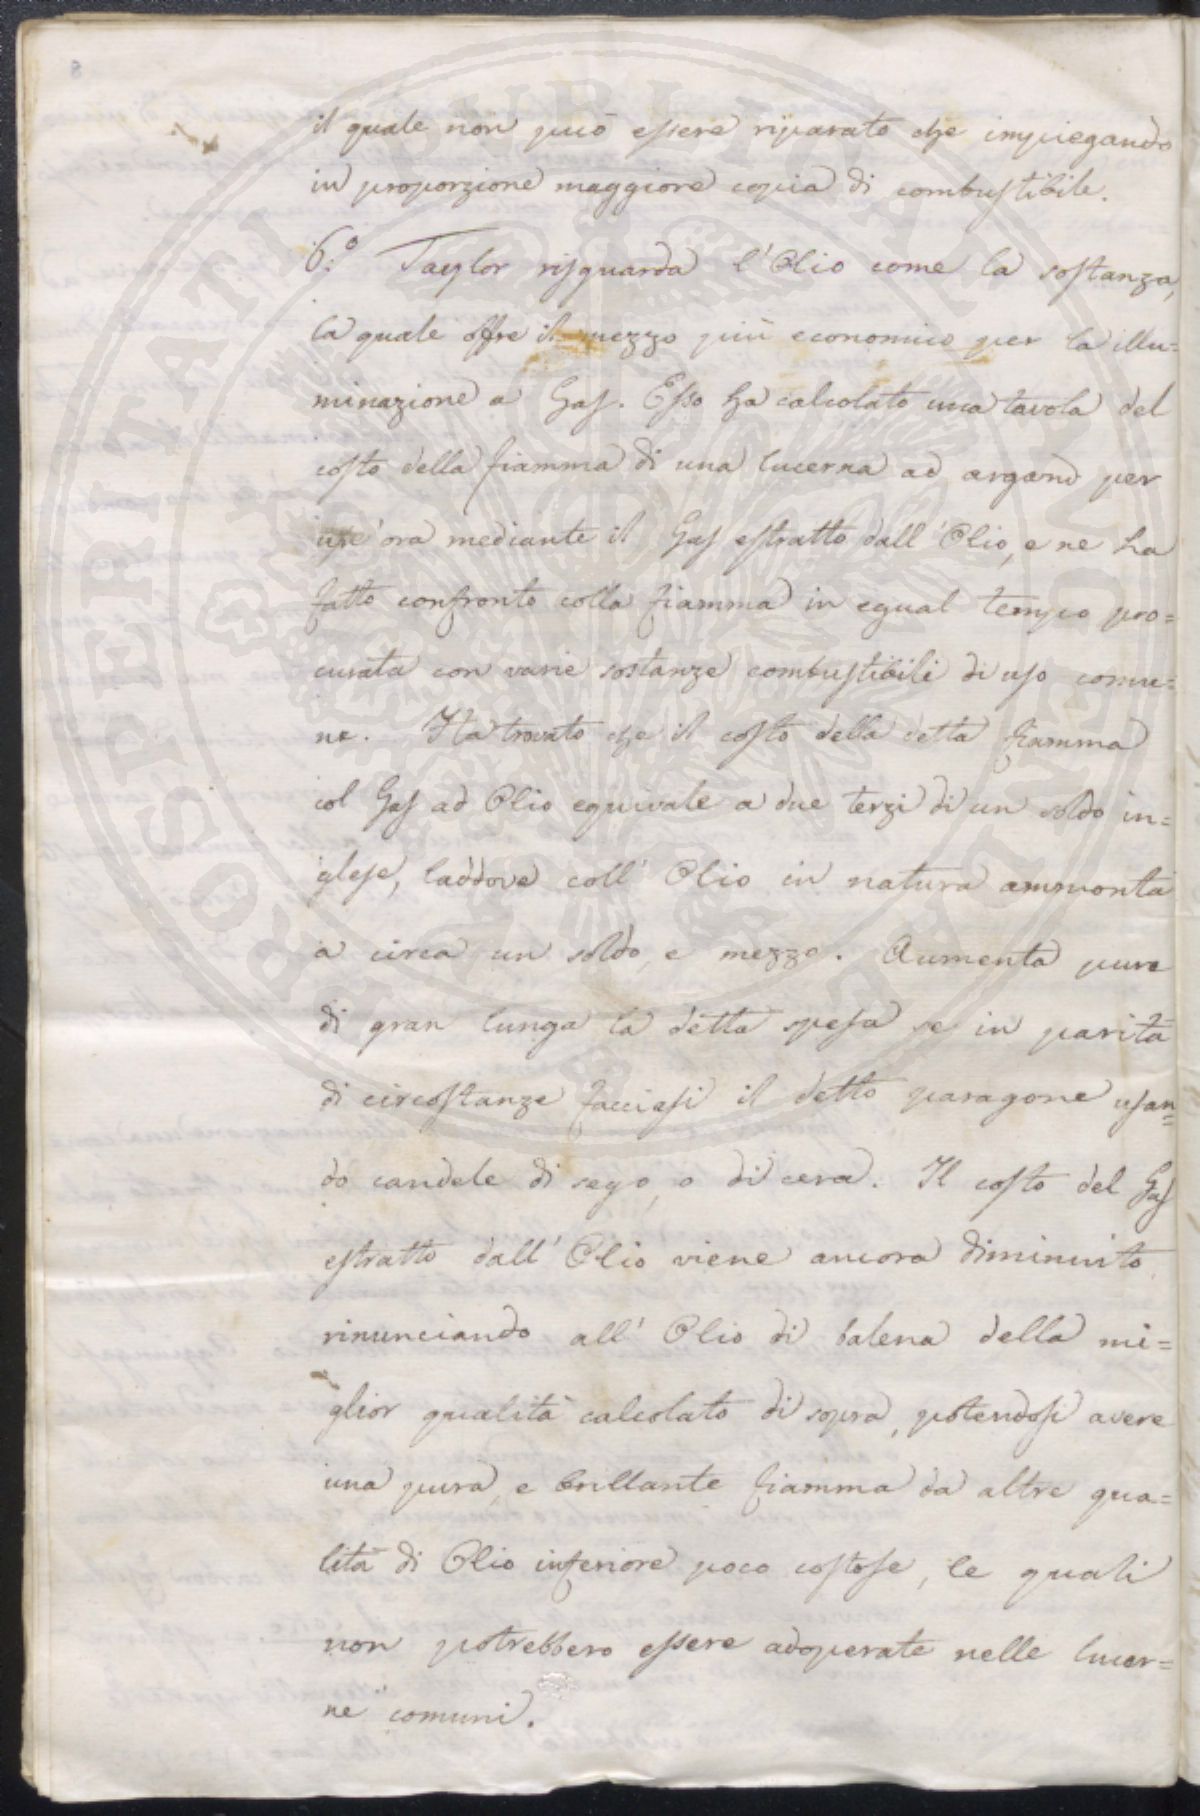 8
il quale non può essere riparato che impiegando
in proporzione maggiore copia di combustibile.
6.° Taylor risguarda l'Olio come la sostanza,
la quale offre il mezzo più economico per la illu=
minazione a Gas. Esso ha calcolato una tavola del
costo della fiamma di una lucerna ad argand per
un'ora mediante il Gas estratto dall'Olio, e ne ha
fatto confronto colla fiamma in egual tempo pro=
curata con varie sostanze combustibili di uso comu=
ne. Ha trovato che il costo della detta fiamma
col Gas ad Olio equivale a due terzi di un soldo in=
glese, laddove coll'Olio in natura ammonta
a circa un soldo, e mezzo. Aumenta pure
di gran lunga la detta spesa se in parità
di circostanze facciasi il detto paragone usan=
do candele di sego, o di cera. Il costo del Gas
estratto dall'Olio viene ancora diminuito
rinunciando all'Olio di balena della mi=
glior qualità calcolato di sopra, potendosi avere
una pura, e brillante fiamma da altre qua=
lità di Olio inferiore poco costose, le quali
non potrebbero essere adoperate nelle lucer=
ne comuni.